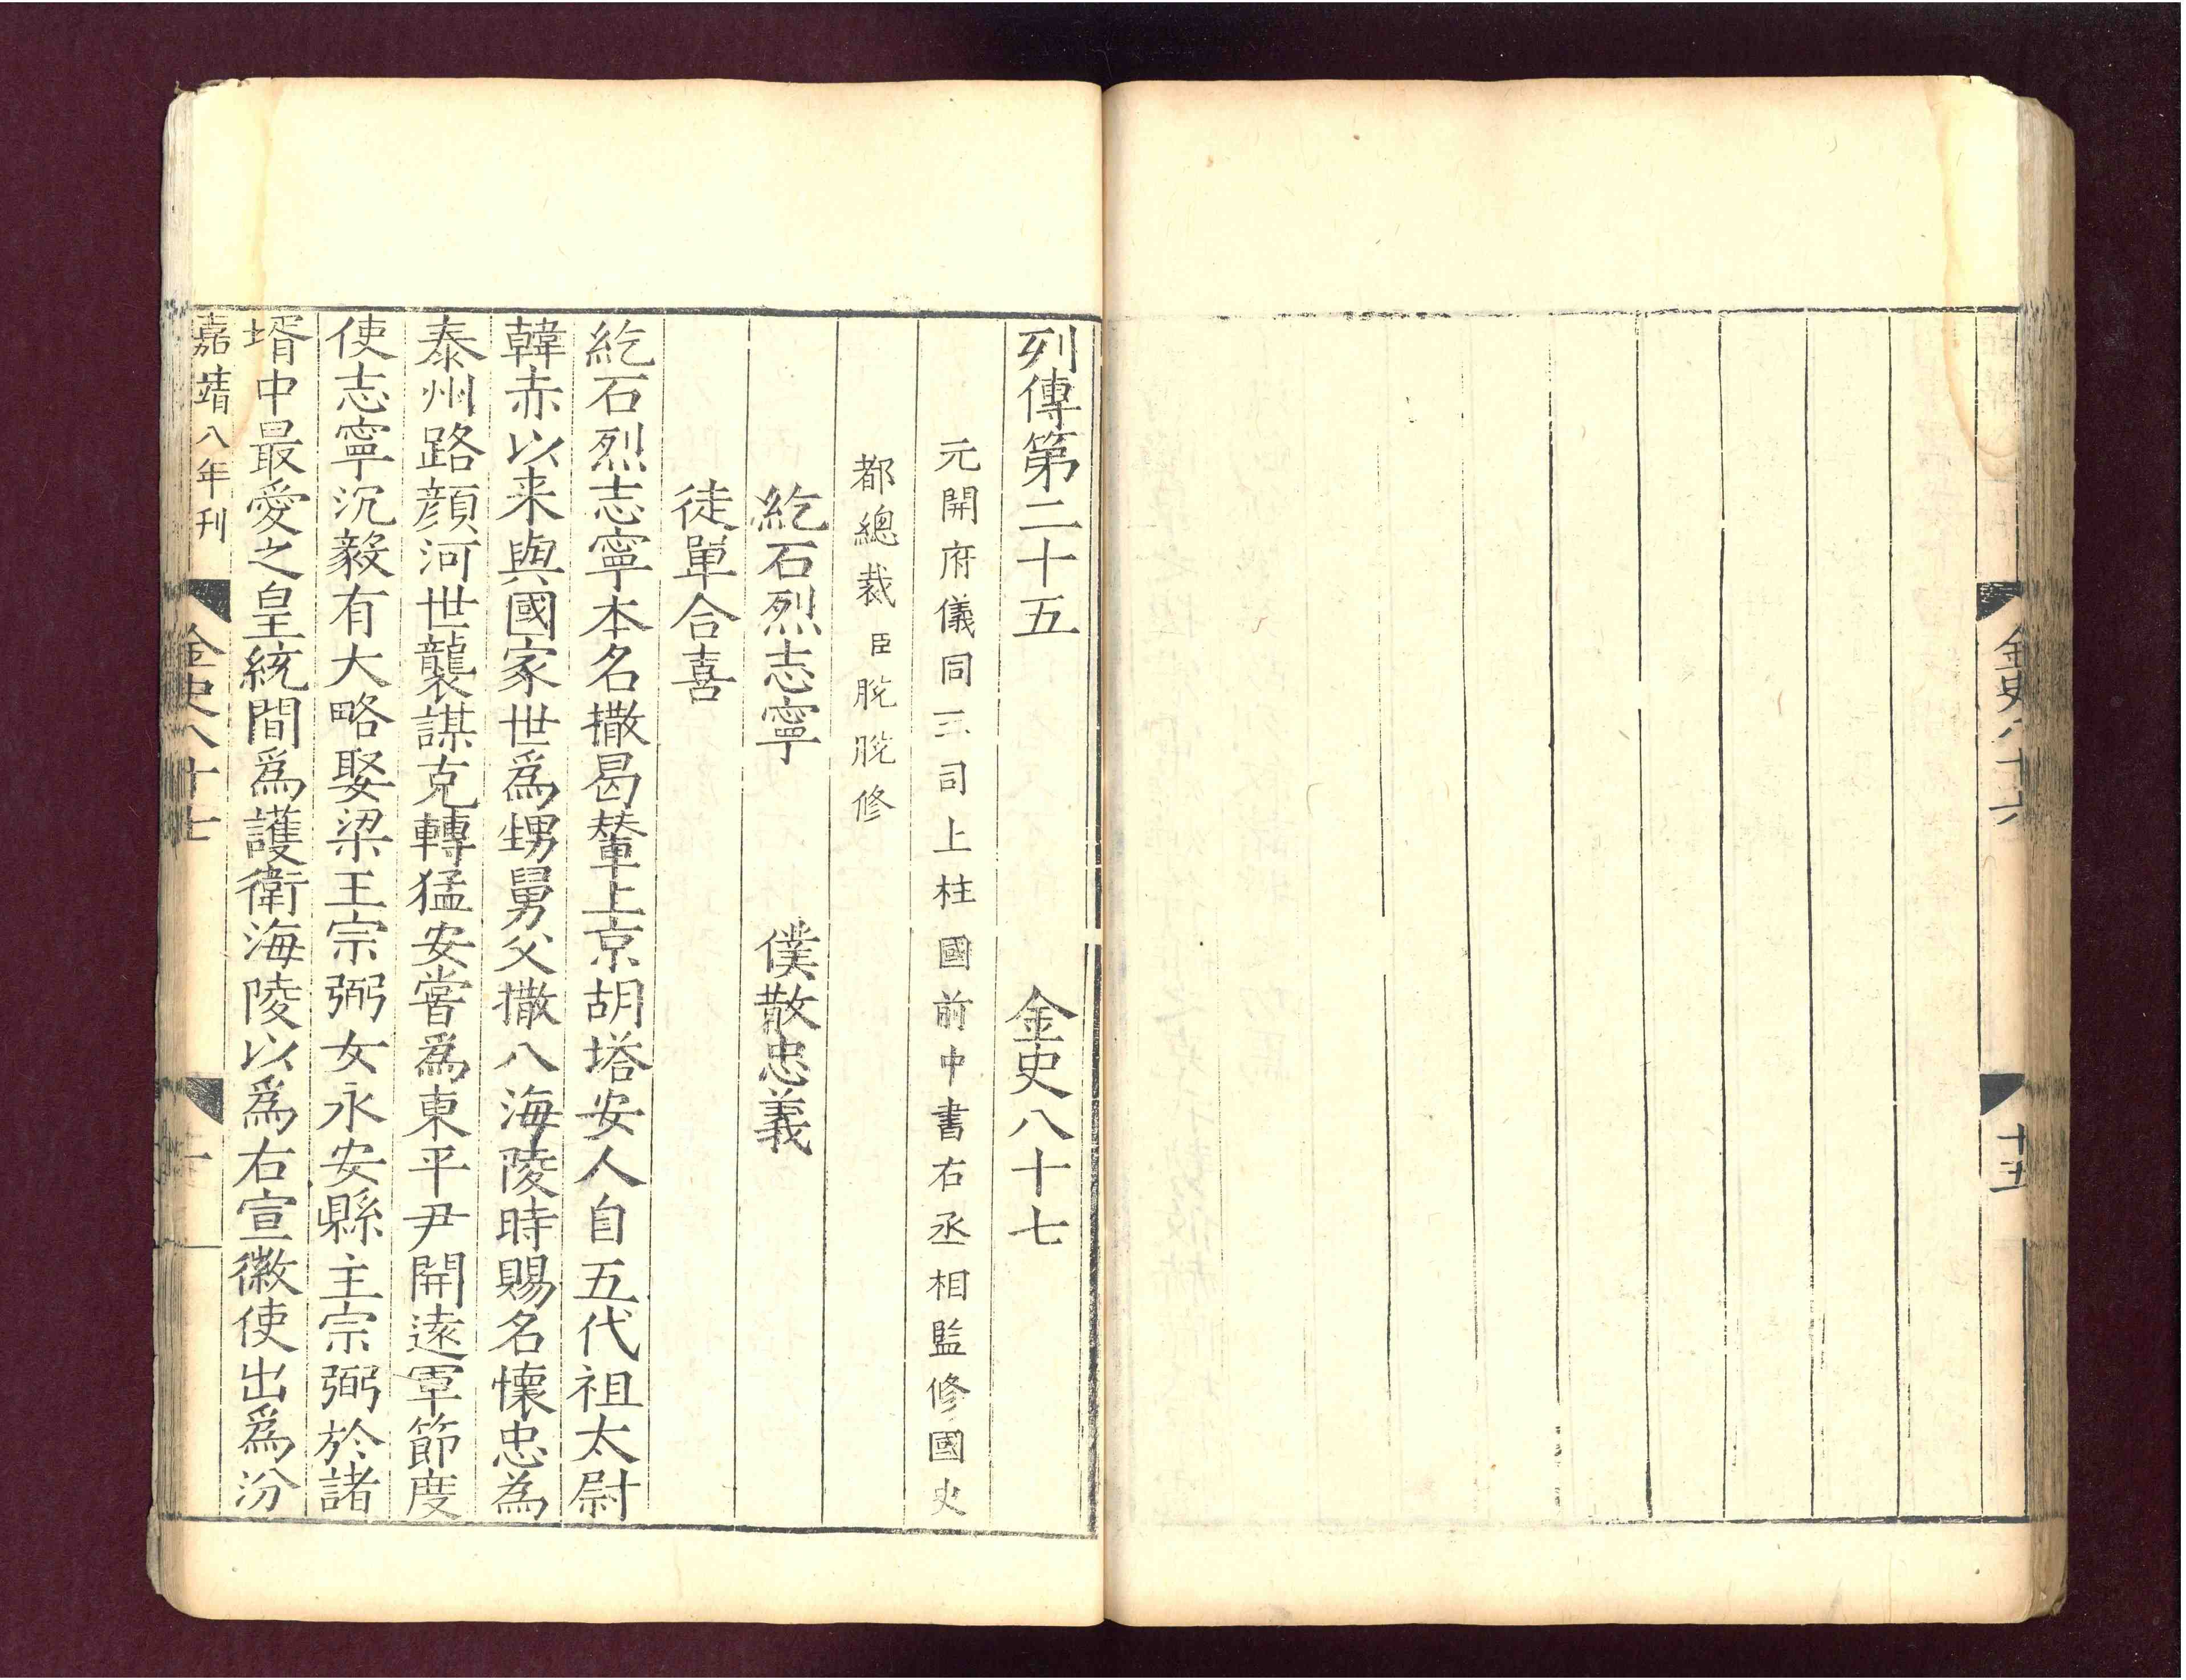 金史八十六
十五
列傳第二十五　金史八十七
元開府儀同三司上柱國前中書右丞相監修國史
都總裁臣脫脫修
紇石烈志寧　僕散忠義
徒單合喜
紇石烈志寧本名撒曷輦上京胡塔安人自五代祖太尉
韓赤以来與國家世爲甥舅父撒八海陵時賜名懷忠為
泰州路顔河世襲謀克轉猛安嘗爲東平尹開遠軍節度
使志寧沉毅有大略娶梁王宗弼女永安縣主宗弼於諸
壻中最愛之皇統間爲護衛海陵以爲右宣徽使出爲汾
嘉靖八年刊
金史八十七
一